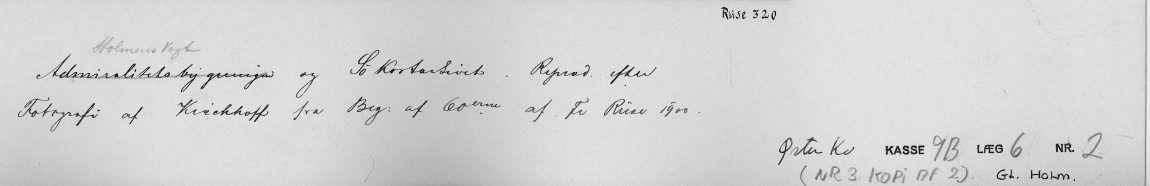 Riise 320
Holmens Vogt
Admiralitetsbygningen og Sö Kortarkivet. Reprod. efter
Fotografi af Kirchhoff fra Beg: af 60erne af Fr Riise 1900.
Øster Kv KASSE 9B LÆG 6 NR. 2
(NR 3 KOPI AF 2). GL. HOLM.